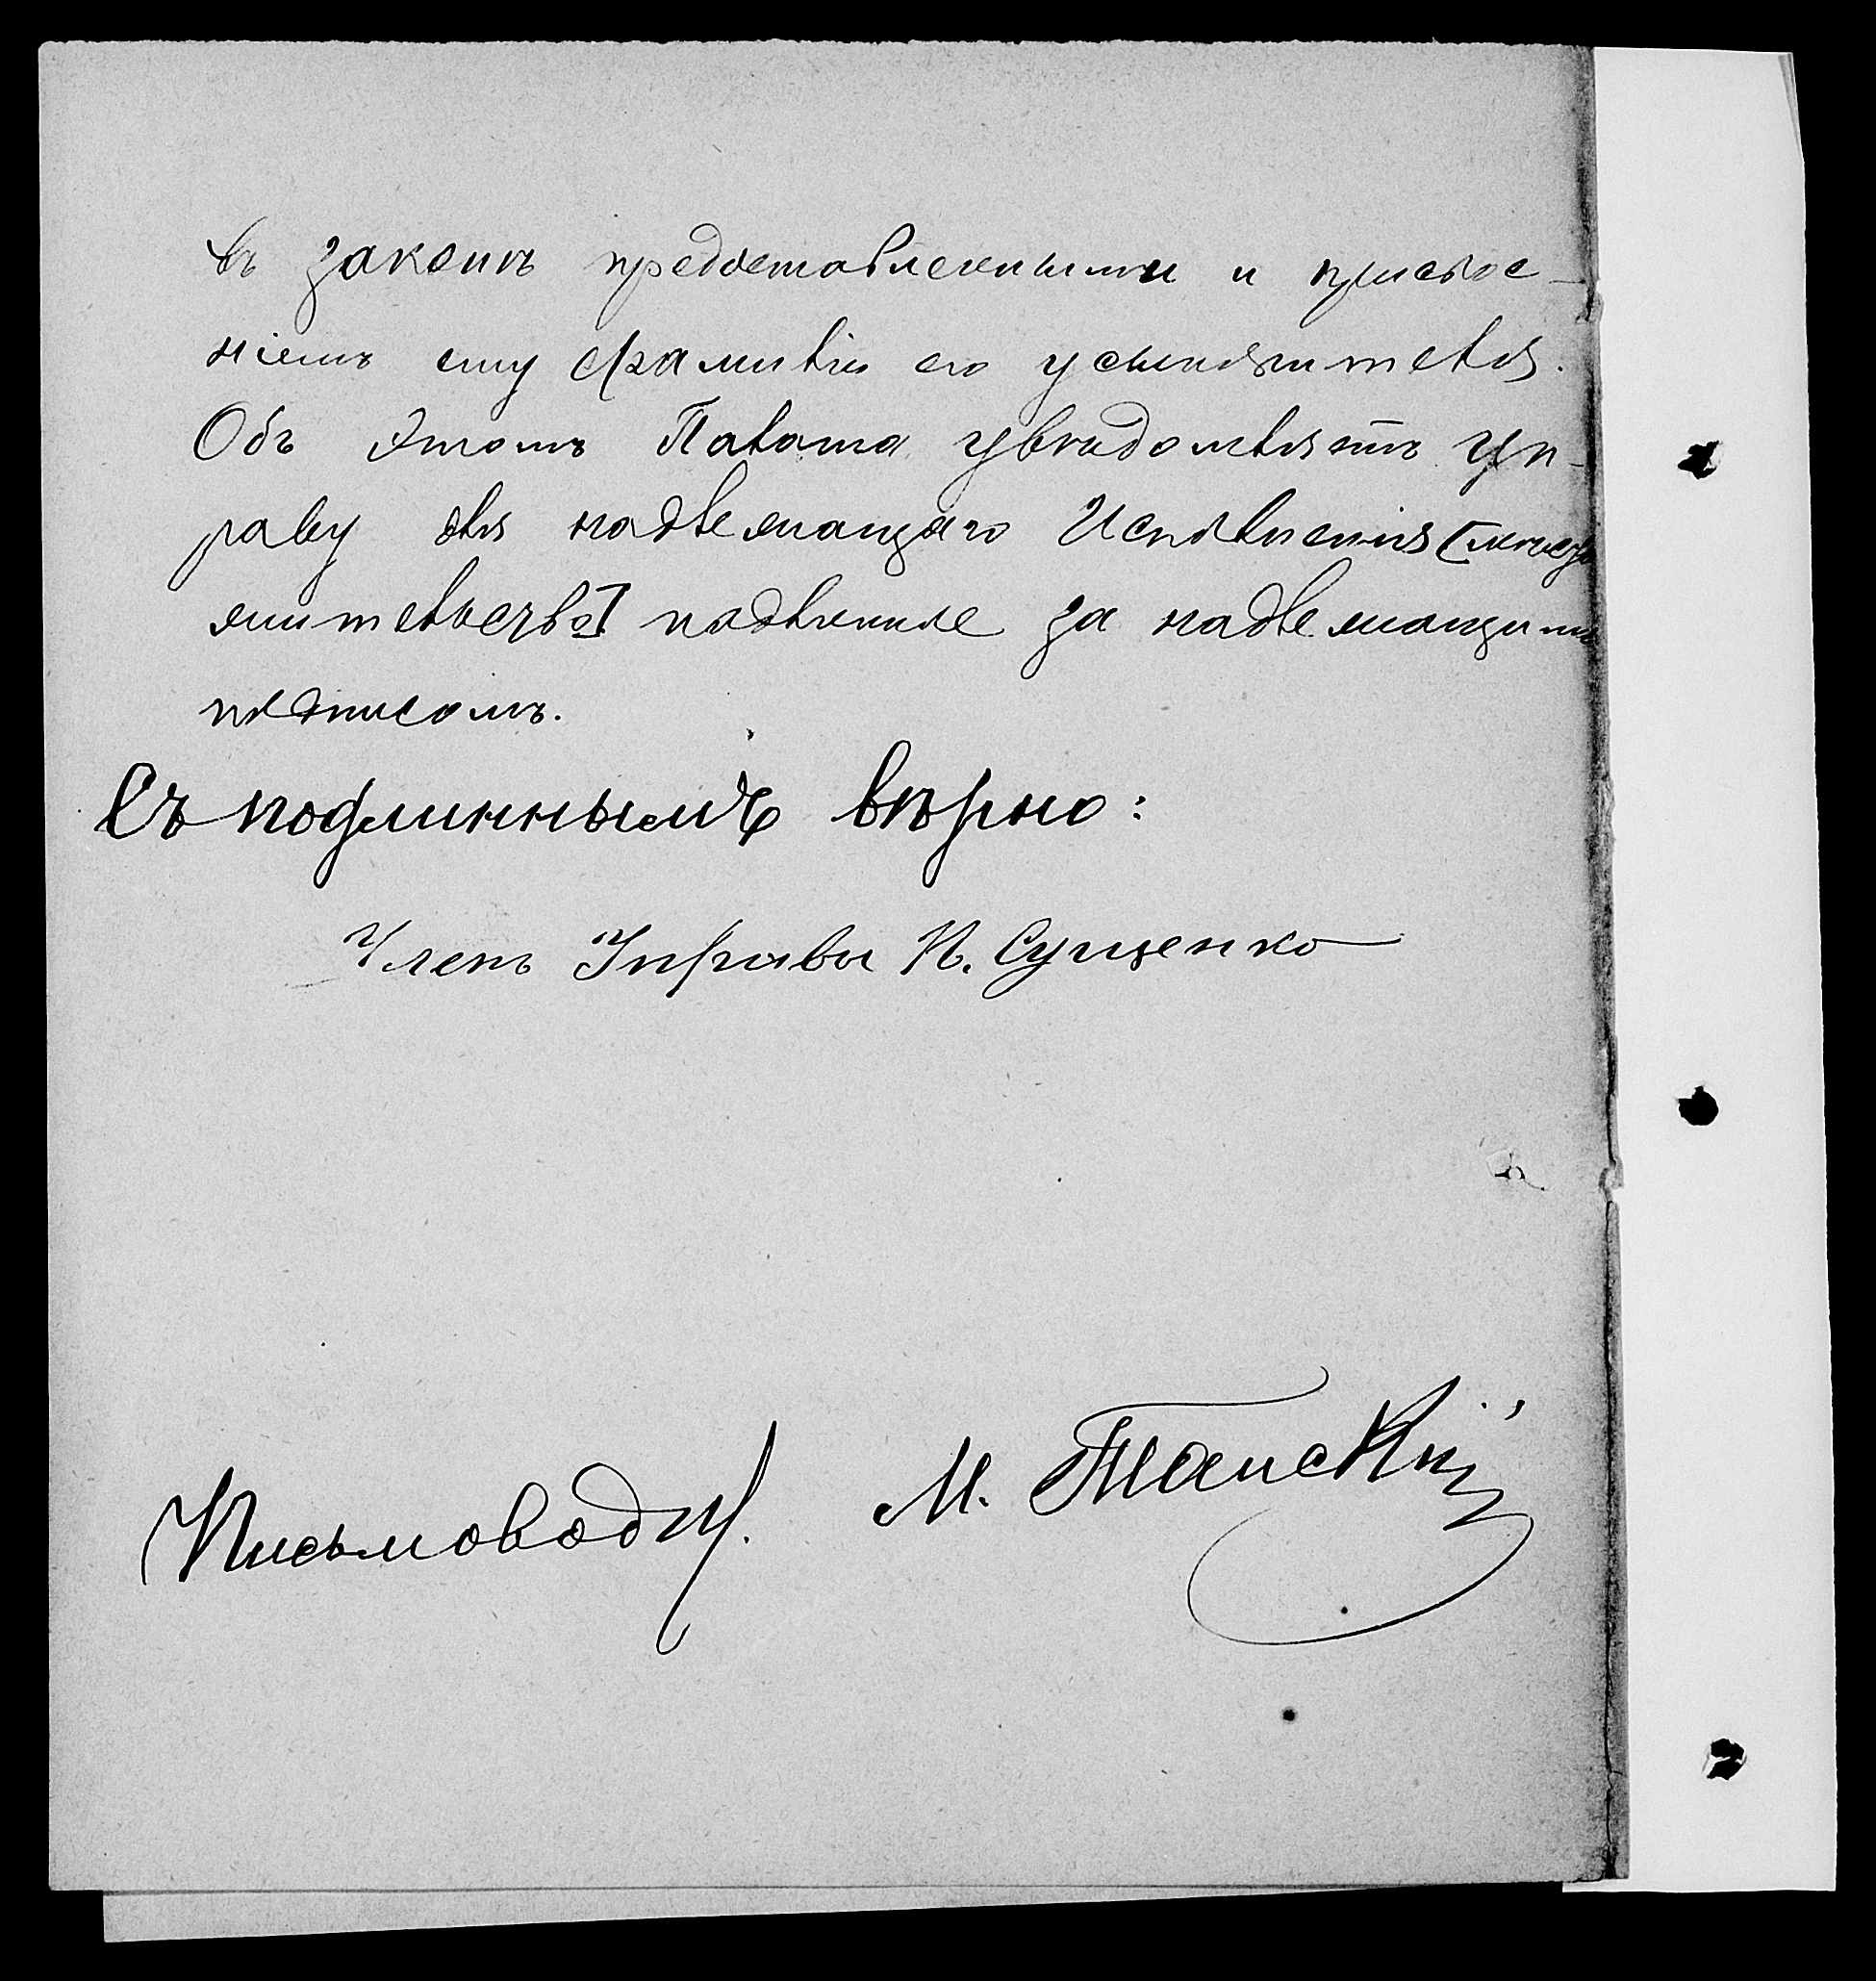 въ законѣ предоставленными и присвое-
ніемъ ему фамиліи его усыновителя.
Объ этомъ Палата увѣдомляетъ Уп-
раву для надлежащаго Исполненія
подлинное за надлежащимъ
подписомъ.
Съ подлиннымъ вѣрно:
Членъ Управы И. Сущенко
Письмовод.
М. Танскій